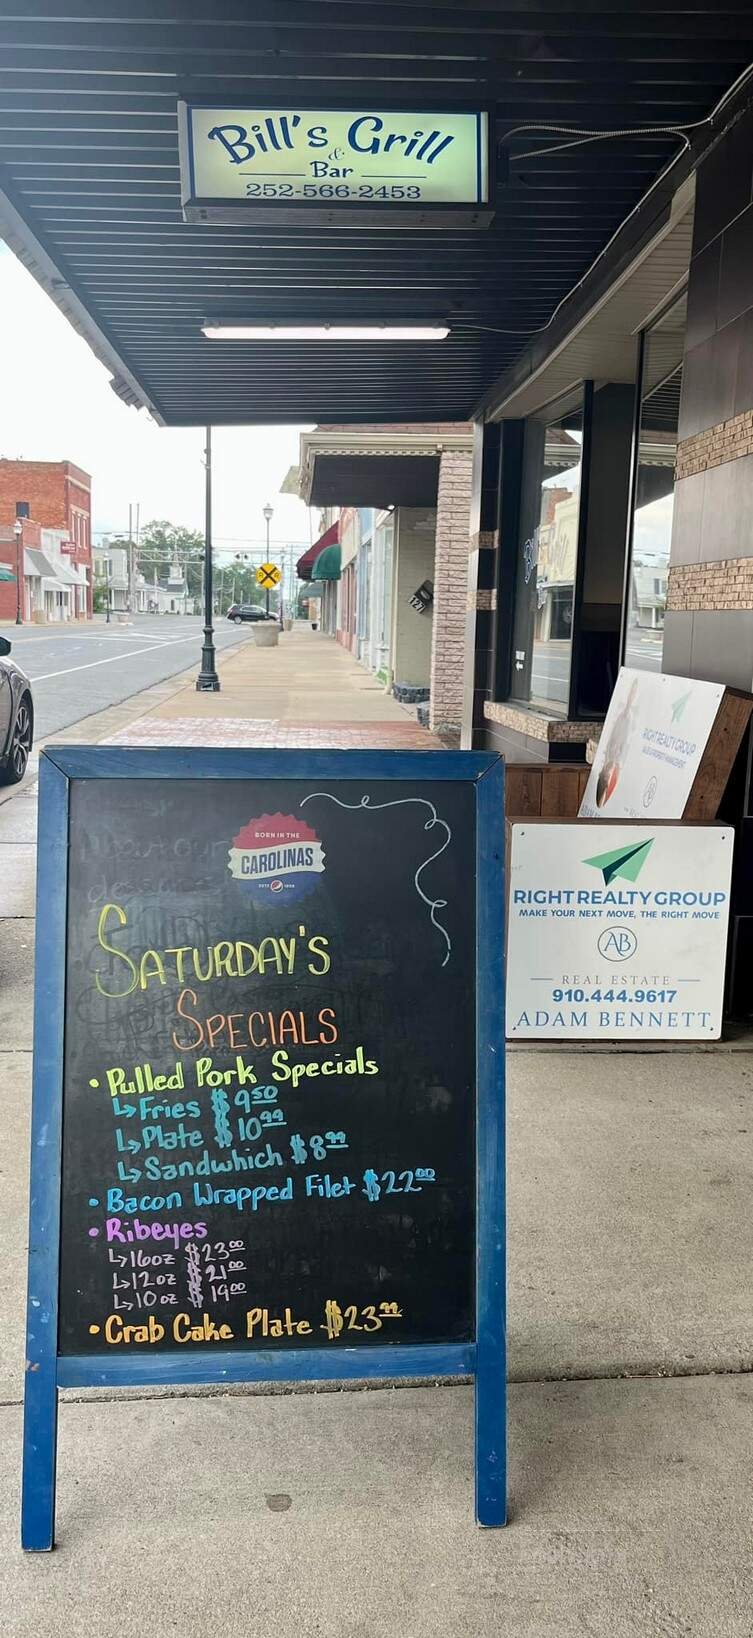 Bill's Grill
&
Bar
252-566-2453
127
RIGHT REALTY GROUP
AB
RIGHT REALTY GROUP
MAKE YOUR NEXT MOVE, THE RIGHT MOVE
AB
REAL ESTATE
910.444.9617
ADAM BENNETT
BORN IN THE
CAROLINAS
SATURDAY'S
SPECIALS
• Pulled Pork Specials
↳ Fries $9.50
↳ Plate $10.99
↳ Sandwhich $8.99
• Bacon Wrapped Filet $22.00
• Ribeyes
↳ 16oz $23.00
↳ 12oz $21.00
↳ 10oz $19.00
• Crab Cake Plate $23.99